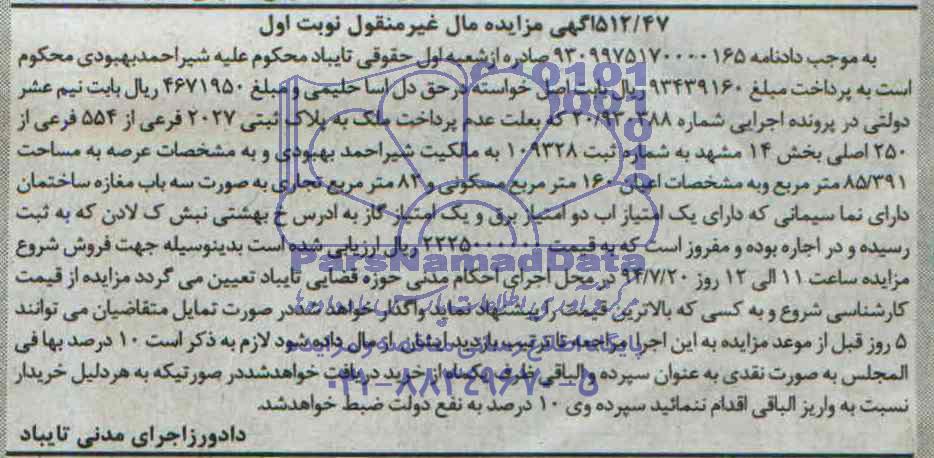 ۵۱۲/۴۷آگهی مزایده مال غیرمنقول نوبت اول
به موجب دادنامه ۹۳۰۹۹۷۵۱۷۰۰۰۰۱۶۵ صادره ازشعبه اول حقوقی تایباد محکوم علیه شیراحمدبهبودی محکوم
است به پرداخت مبلغ ۹۳۴۳۹۱۶۰ ریال بابت اصل خواسته درحق دل آسا حلیمی و مبلغ ۴۶۷۱۹۵۰ ریال بابت نیم عشر
دولتی در پرونده اجرایی شماره ۲۰/۹۳۰۳۸۸ که بعلت عدم پرداخت ملک به پلاک ثبتی ۲۰۲۷ فرعی از ۵۵۴ فرعی از
۲۵۰ اصلی بخش ۱۴ مشهد به شماره ثبت ۱۰۹۳۲۸ به مالکیت شیراحمد بهبودی و به مشخصات عرصه به مساحت
۸۵/۳۹۱ متر مربع وبه مشخصات اعیان ۱۶۰ متر مربع مسکونی و ۸۲ متر مربع تجاری به صورت سه باب مغازه ساختمان
دارای نما سیمانی که دارای یک امتیاز اب دو امتیاز برق و یک امتیاز گاز به ادرس خ بهشتی نبش ک لادن که به ثبت
رسیده و در اجاره بوده و مفروز است که به قیمت ۲۲۲۵۰۰۰۰۰۰ ریال ارزیابی شده است بدینوسیله جهت فروش شروع
مزایده ساعت ۱۱ الی ۱۲ روز ۹۴/۷/۲۰ در محل اجرای احکام مدنی حوزه قضایی تایباد تعیین می گردد مزایده از قیمت
کارشناسی شروع و به کسی که بالاترین قیمت را پیشنهاد نماید واگذار خواهد شددر صورت تمایل متقاضیان می توانند
۵ روز قبل از موعد مزایده به این اجرا مراجعه تا ترتیب بازدید ایشان از مال داده شود لازم به ذکر است ۱۰ درصد بها فی
المجلس به صورت نقدی به عنوان سپرده و الباقی ظرف یکماه از خرید دریافت خواهدشددر صورتیکه به هردلیل خریدار
نسبت به واریز الباقی اقدام ننمائید سپرده وی ۱۰ درصد به نفع دولت ضبط خواهدشد.
دادورزاجرای مدنی تایباد
ParsNamadData
۰۲۱-۸۸۳۴۹۶۷۰-۵